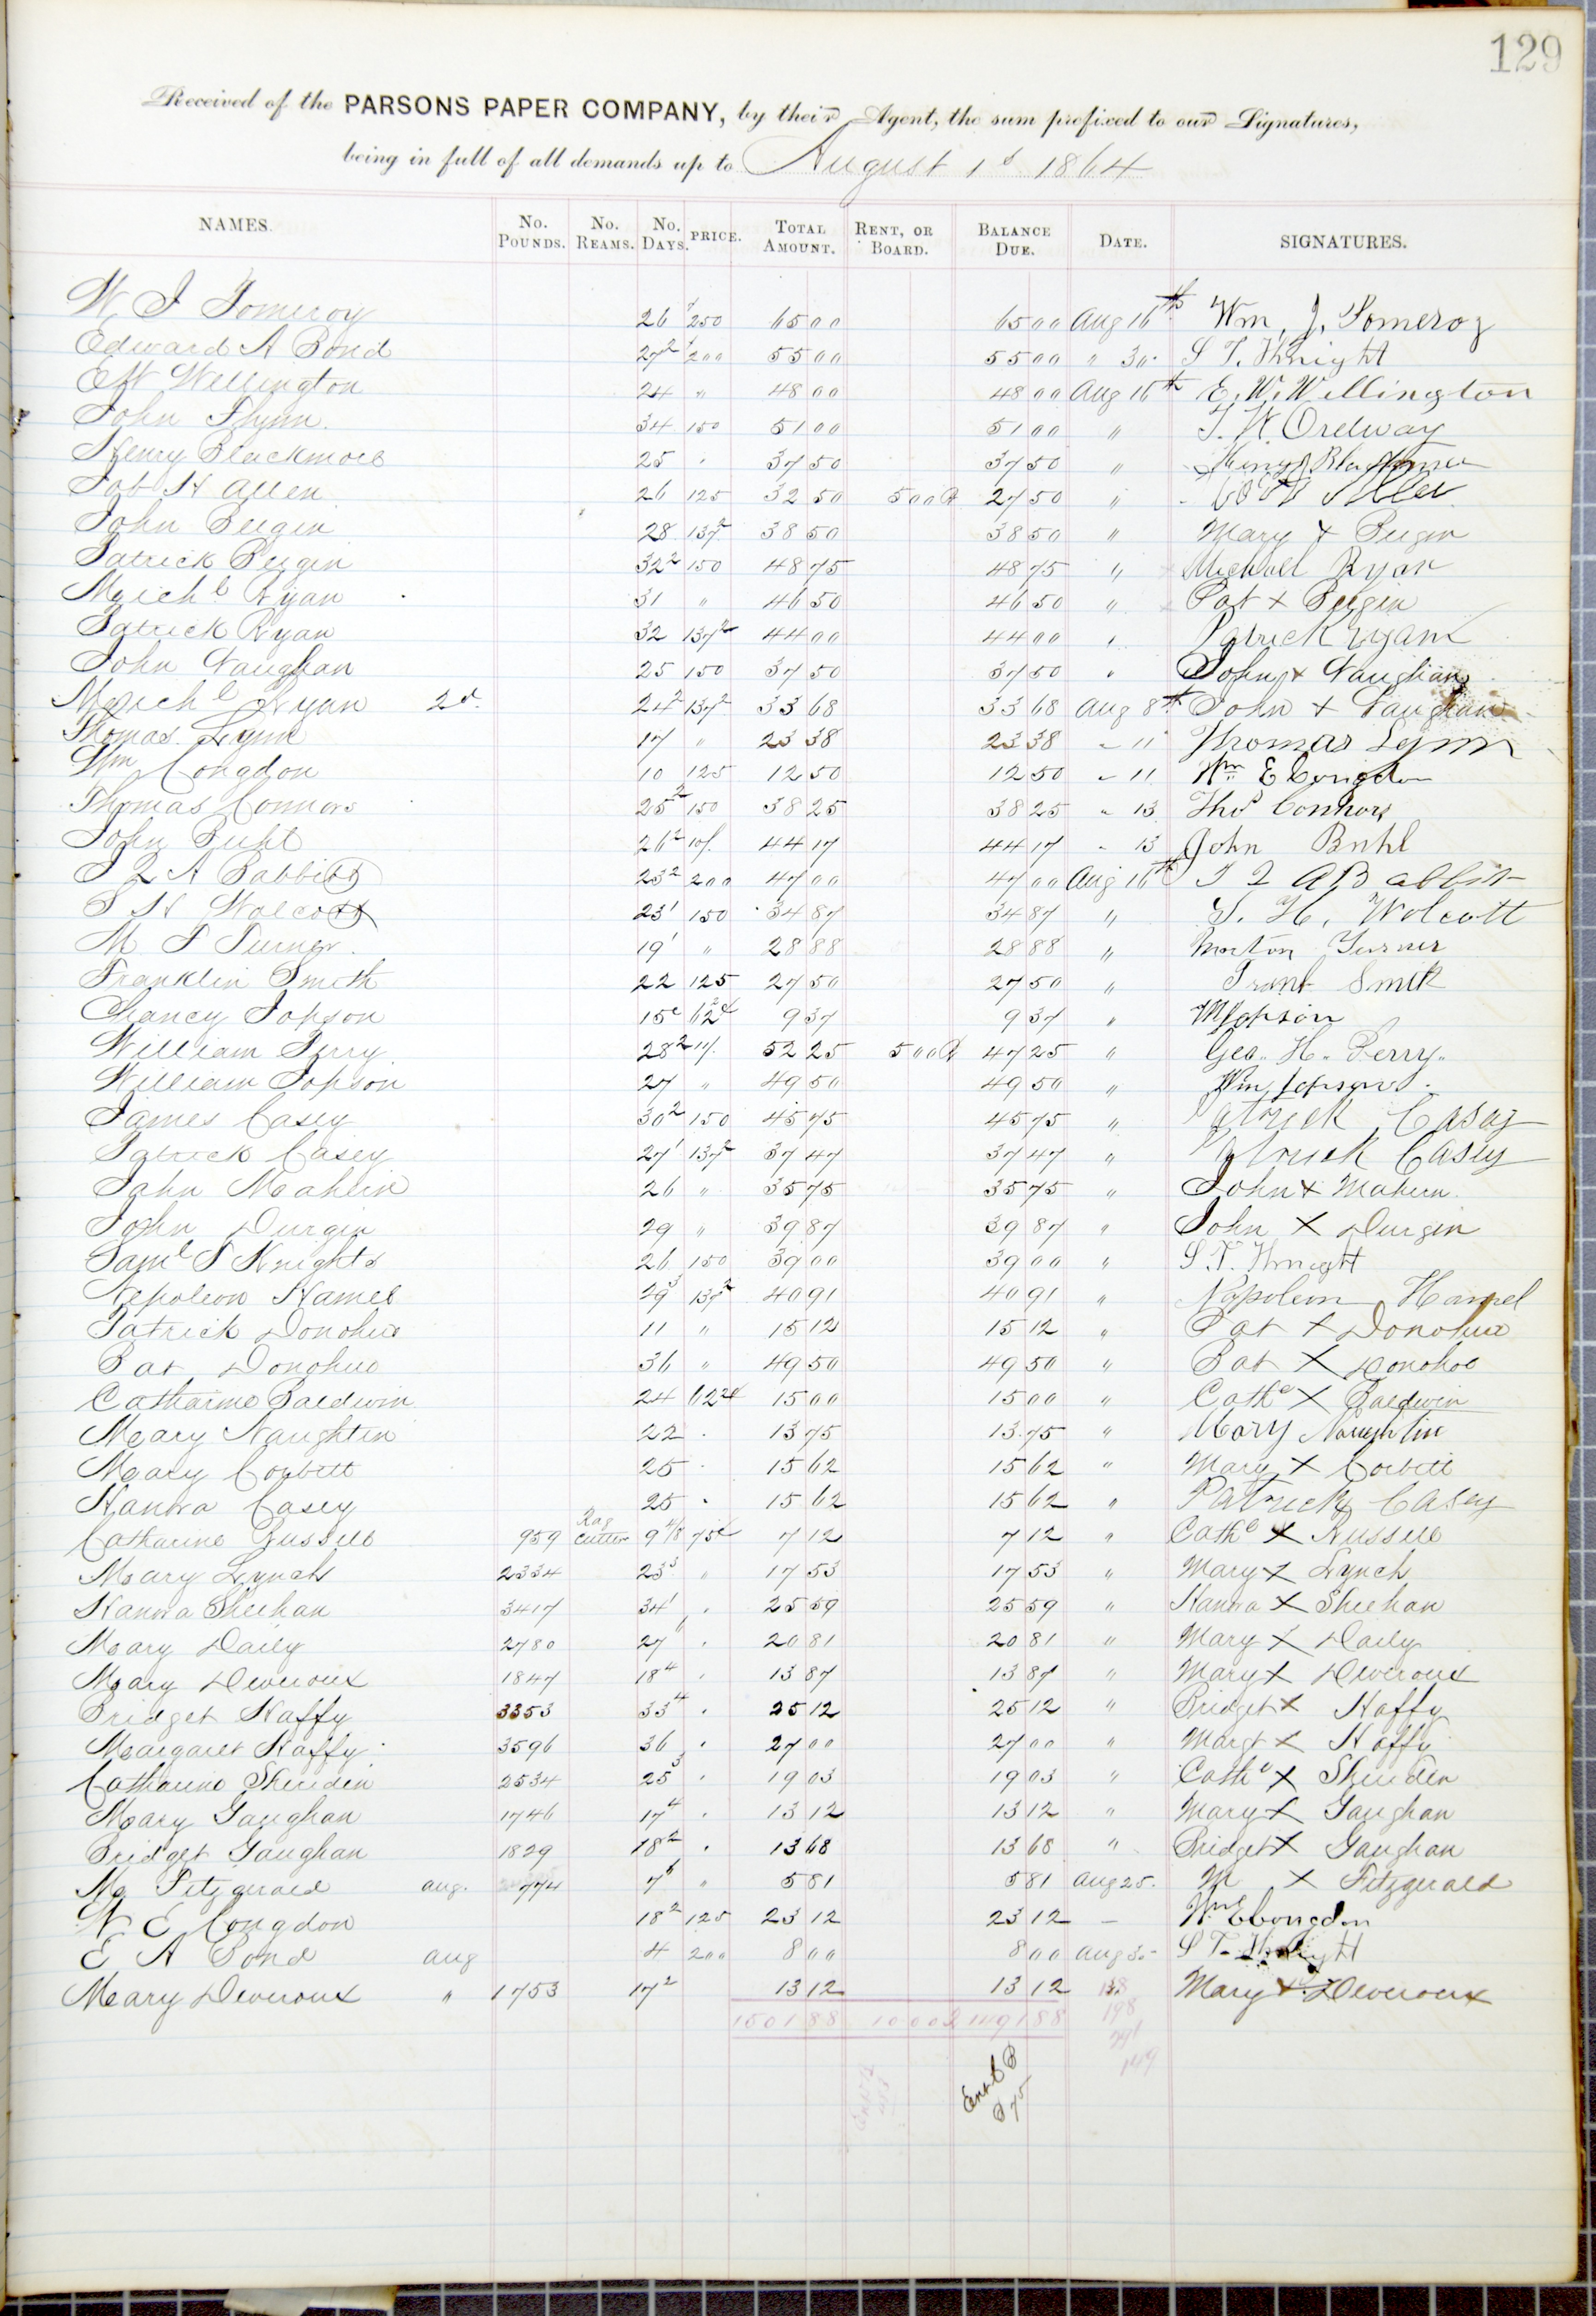 129
Received of the PARSONS PAPER COMPANY, by their Agent, the sum prefixed to our Signatures,
being in full of all demands up to August 1st 1864
NAMES. No. POUNDS. No. REAMS. No. DAYS. PRICE. TOTAL AMOUNT. RENT, OR BOARD. BALANCE DUE. DATE. SIGNATURES.
W J Pomeroy 26 250 65 00 65 00 Aug 16th Wm. J. Pomeroy
Edward A Bond 27 2 200 55 00 55 00 " 30 S T. Knight
E W Wellington 24 " 48 00 48 00 Aug 16th E. W. Wellington
John Flynn. 34 150 51 00 51 00 " T. W. Ordway
Henry Blackmore 25 " 37 50 37 50 " Henry Blackmer
Job H Allen 26 125 32 50 5 00 27 50 "
John Bergin 28 137 2 38 50 38 50 " Mary X Bergin
Patrick Bergin 32 2 150 48 75 48 75 " Michael Ryan
Michl Ryan 31 " 46 50 46 50 " Pat X Bergin
Patrick Ryan 32 137 2 44 00 44 00 " Patrick Ryan
John Vaughan 25 150 37 50 37 50 " John X Vaughan
Michl Ryan 2d. 24 2 137 2 33 68 33 68 Aug 8th John X Vaughan
Thomas Lynn 17 " 23 38 23 38 " 11 Thomas Lynn
Wm Congdon 10 125 12 50 12 50 " 11 Wm E Congdon
Thomas Connors 25 2 150 38 25 38 25 " 13 Thos Connors
John Buhl 26 2 10/ 44 17 44 17 " 13 John Buhl
J Q A Babbitt 23 2 200 47 00 47 00 Aug 16th J Q A Babbitt
S H Wolcott 23 1 150 34 87 34 87 " S. H. Wolcott
M T Turner. 19 1 " 28 88 28 88 " Morton Turner
Franklin Smith 22 125 27 50 27 50 " Frank Smith
Chancy Jopson 15 62 2 9 37 9 37 " W Jopson
William Perry 28 2 11/ 52 25 5 00 47 25 " Geo. H. Perry.
William Jopson 27 " 49 50 49 50 " Wm Jopson.
James Casey 30 2 150 45 75 45 75 " Patrick Casey
Patrick Casey 27 1 137 2 37 47 37 47 " Patrick Casey
John Mahlin 26 " 35 75 35 75 " John X Mahern
John Durgin 29 " 39 87 39 87 " John X Durgin
Saml T Knights 26 150 39 00 39 00 " S. T. Knight
Napoleon Hamel 29 3 137 2 40 91 40 91 " Napoleon Hamel
Patrick Donohue 11 " 15 12 15 12 " Pat X Donohue
Pat Donohue 36 " 49 50 49 50 " Pat X Donohoe
Catharine Baldwin 24 62 2 15 00 15 00 " Cathe X Baldwin
Mary Naughten 22 " 13 75 13 75 " Mary Naughtin
Mary Corbett 25 " 15 62 15 62 " Mary X Corbett
Hanora Casey 25 " 15 62 15 62 " Patrick Casey
Catharine Russell 959 Rag Cutter 9 4/8 75c 7 12 7 12 " Cathe X Russell
Mary Lynch 2334 23 3 " 17 53 17 53 " Mary X Lynch
Hanora Sheehan 3417 34 1 " 25 59 25 59 " Hanora X Sheehan
Mary Daily 2780 27 6 " 20 81 20 81 " Mary X Daily
Mary Deveroux 1847 18 4 " 13 87 13 87 " Mary X Deveroux
Bridget Haffy 3353 33 4 " 25 12 25 12 " Bridget X Haffy
Margaret Haffy 3596 36 " 27 00 27 00 " Margt X Haffy
Catharine Sheriden 2534 25 3 " 19 03 19 03 " Cathe X Sheriden
Mary Gaughan 1746 17 4 " 13 12 13 12 " Mary X Gaughan
Bridget Gaughan 1829 18 2 " 13 68 13 68 " Bridget X Gaughan
M Fitzgerald aug. 774 7 6 " 5 81 5 81 Aug 25. M X Fitzgerald
W E Congdon 18 2 125 23 12 23 12 — Wm E Congdon
E A Bond aug 4 200 8 00 8 00 Aug 30 S T. Knight
Mary Deveroux " 1753 17 2 13 12 13 12 Mary X Deveroux
1501 88 10 00 1491 88
198